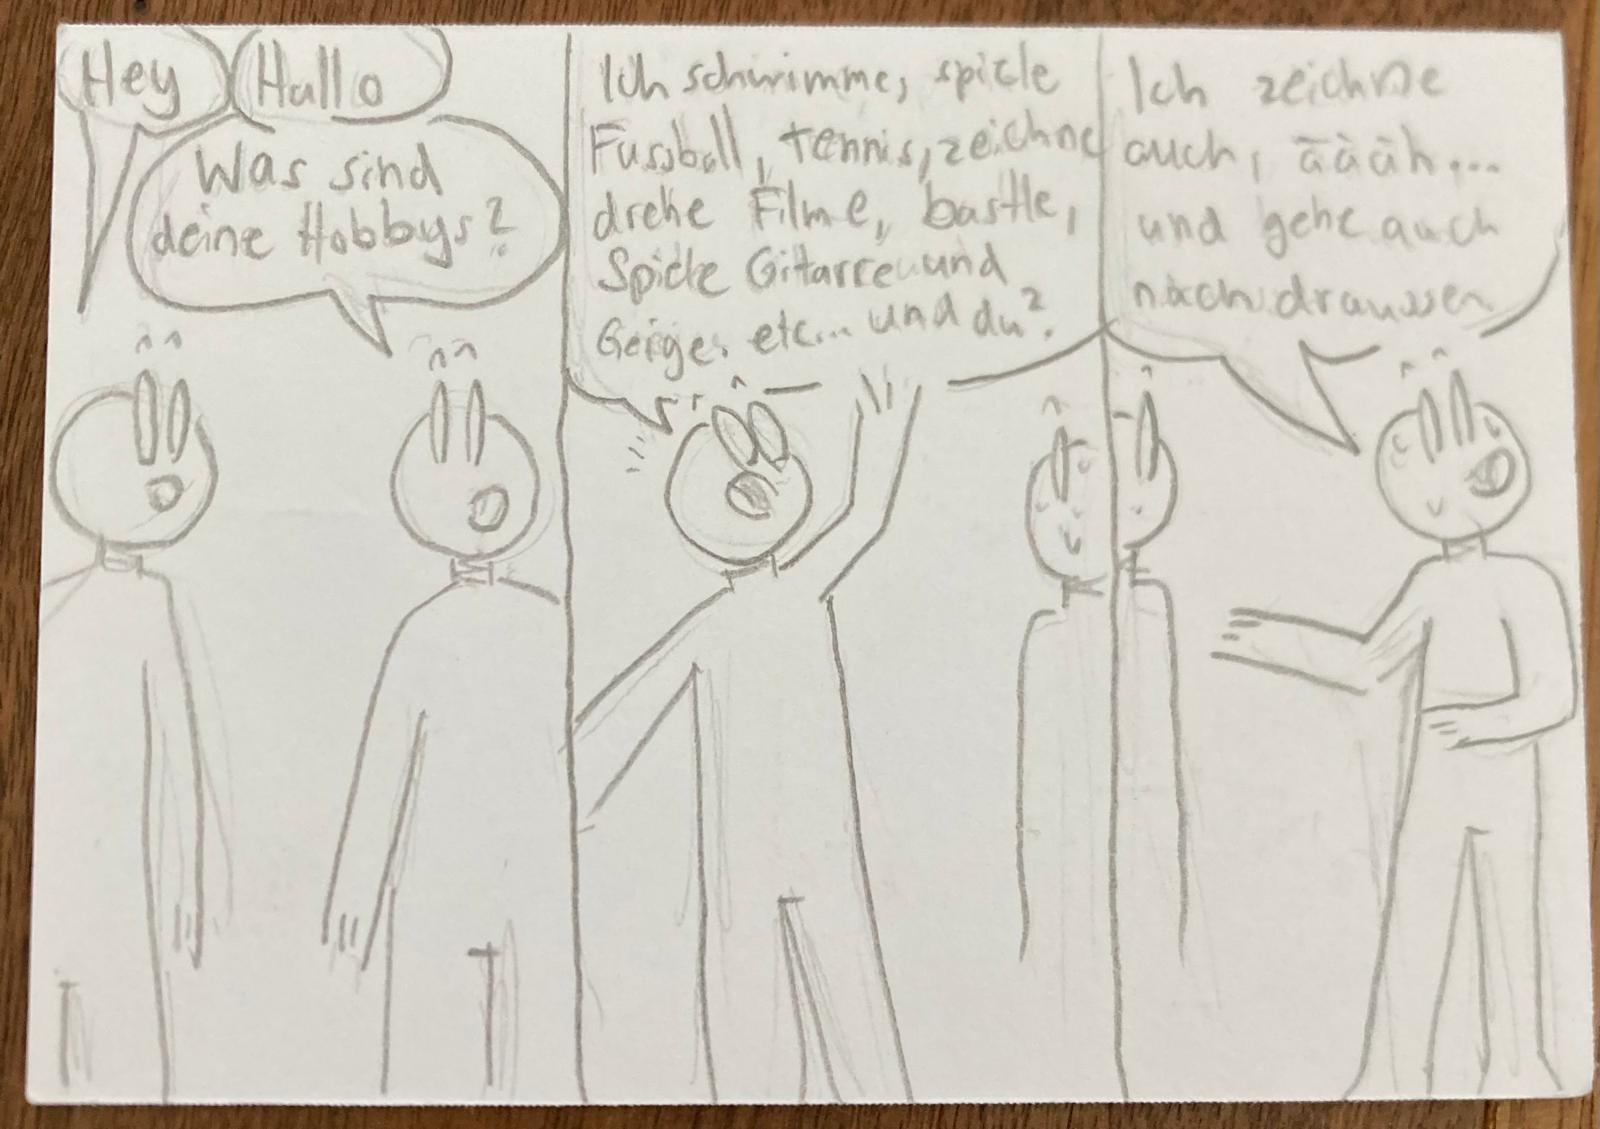 Hey
Hallo
Was sind
deine Hobbys?
Ich schwimme, spiele
Fussball, tennis, zeichne
drehe Filme, bastle,
Spiele Gitarre und
Geige. etc... und du?
Ich zeichne
auch, äääh...
und gehe auch
nach draussen